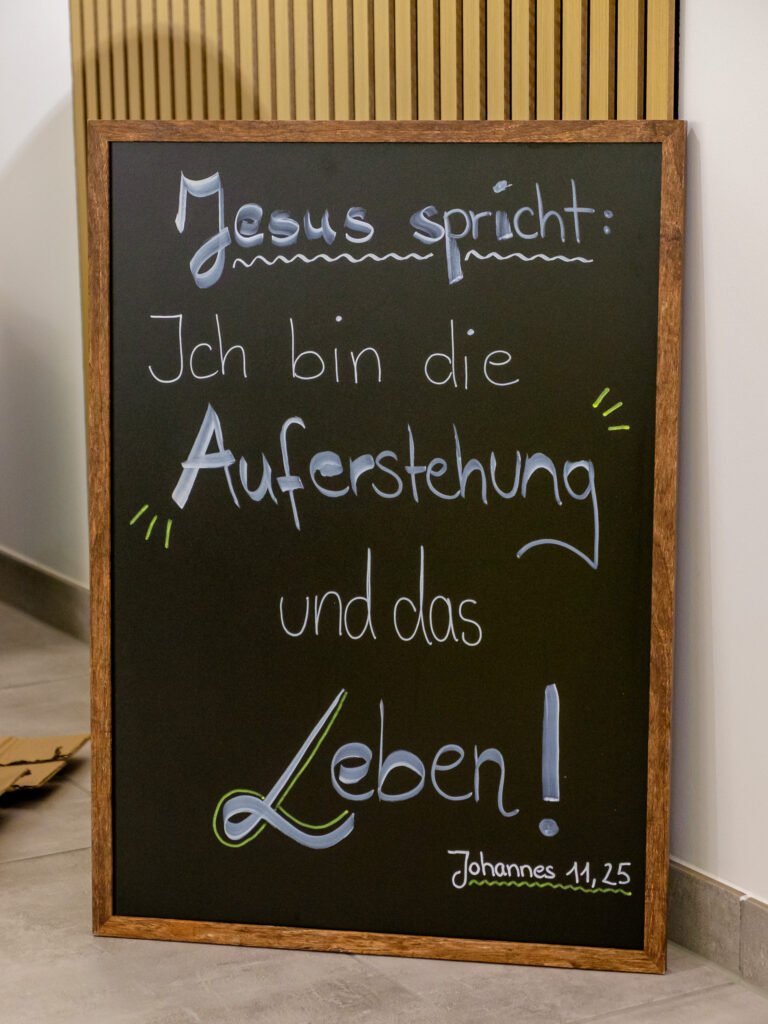 Jesus spricht:
Ich bin die
Auferstehung
und das
Leben!
Johannes 11,25